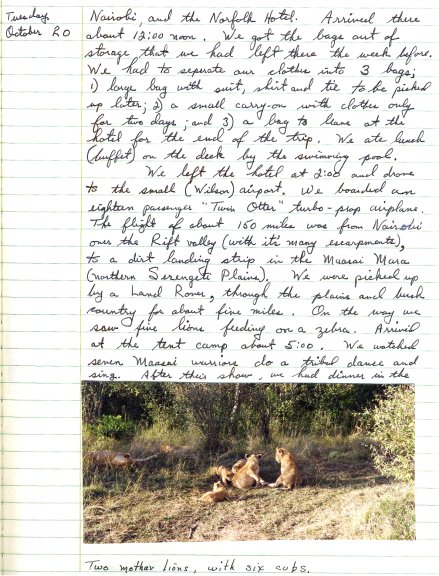 Tuesday
October 20
Nairobi, and the Norfolk Hotel. Arrived there
about 12:00 noon. We got the bags out of
storage that we had left there the week before.
We had to seperate our clothes into 3 bags;
1) large bag with suit, shirt and tie to be picked
up later; 2) a small carry-on with clothes only
for two days; and 3) a bag to leave at the
hotel for the end of the trip. We ate lunch
(buffet) on the deck by the swimming pool.
We left the hotel at 2:00 and drove
to the small (Wilson) airport. We boarded an
eighteen passenger "Twin Otter" turbo-prop airplane.
The flight of about 150 miles was from Nairobi
over the Rift valley (with it's many escarpments),
to a dirt landing strip in the Maasai Mara
(northern Serengeti Plains). We were picked up
by a Land Rover, through the plains and bush
country for about five miles. On the way we
saw five lions feeding on a zebra. Arrived
at the tent camp about 5:00. We watched
seven Maasai warriors do a tribal dance and
sing. After their show, we had dinner in the
Two mother lions, with six cubs.